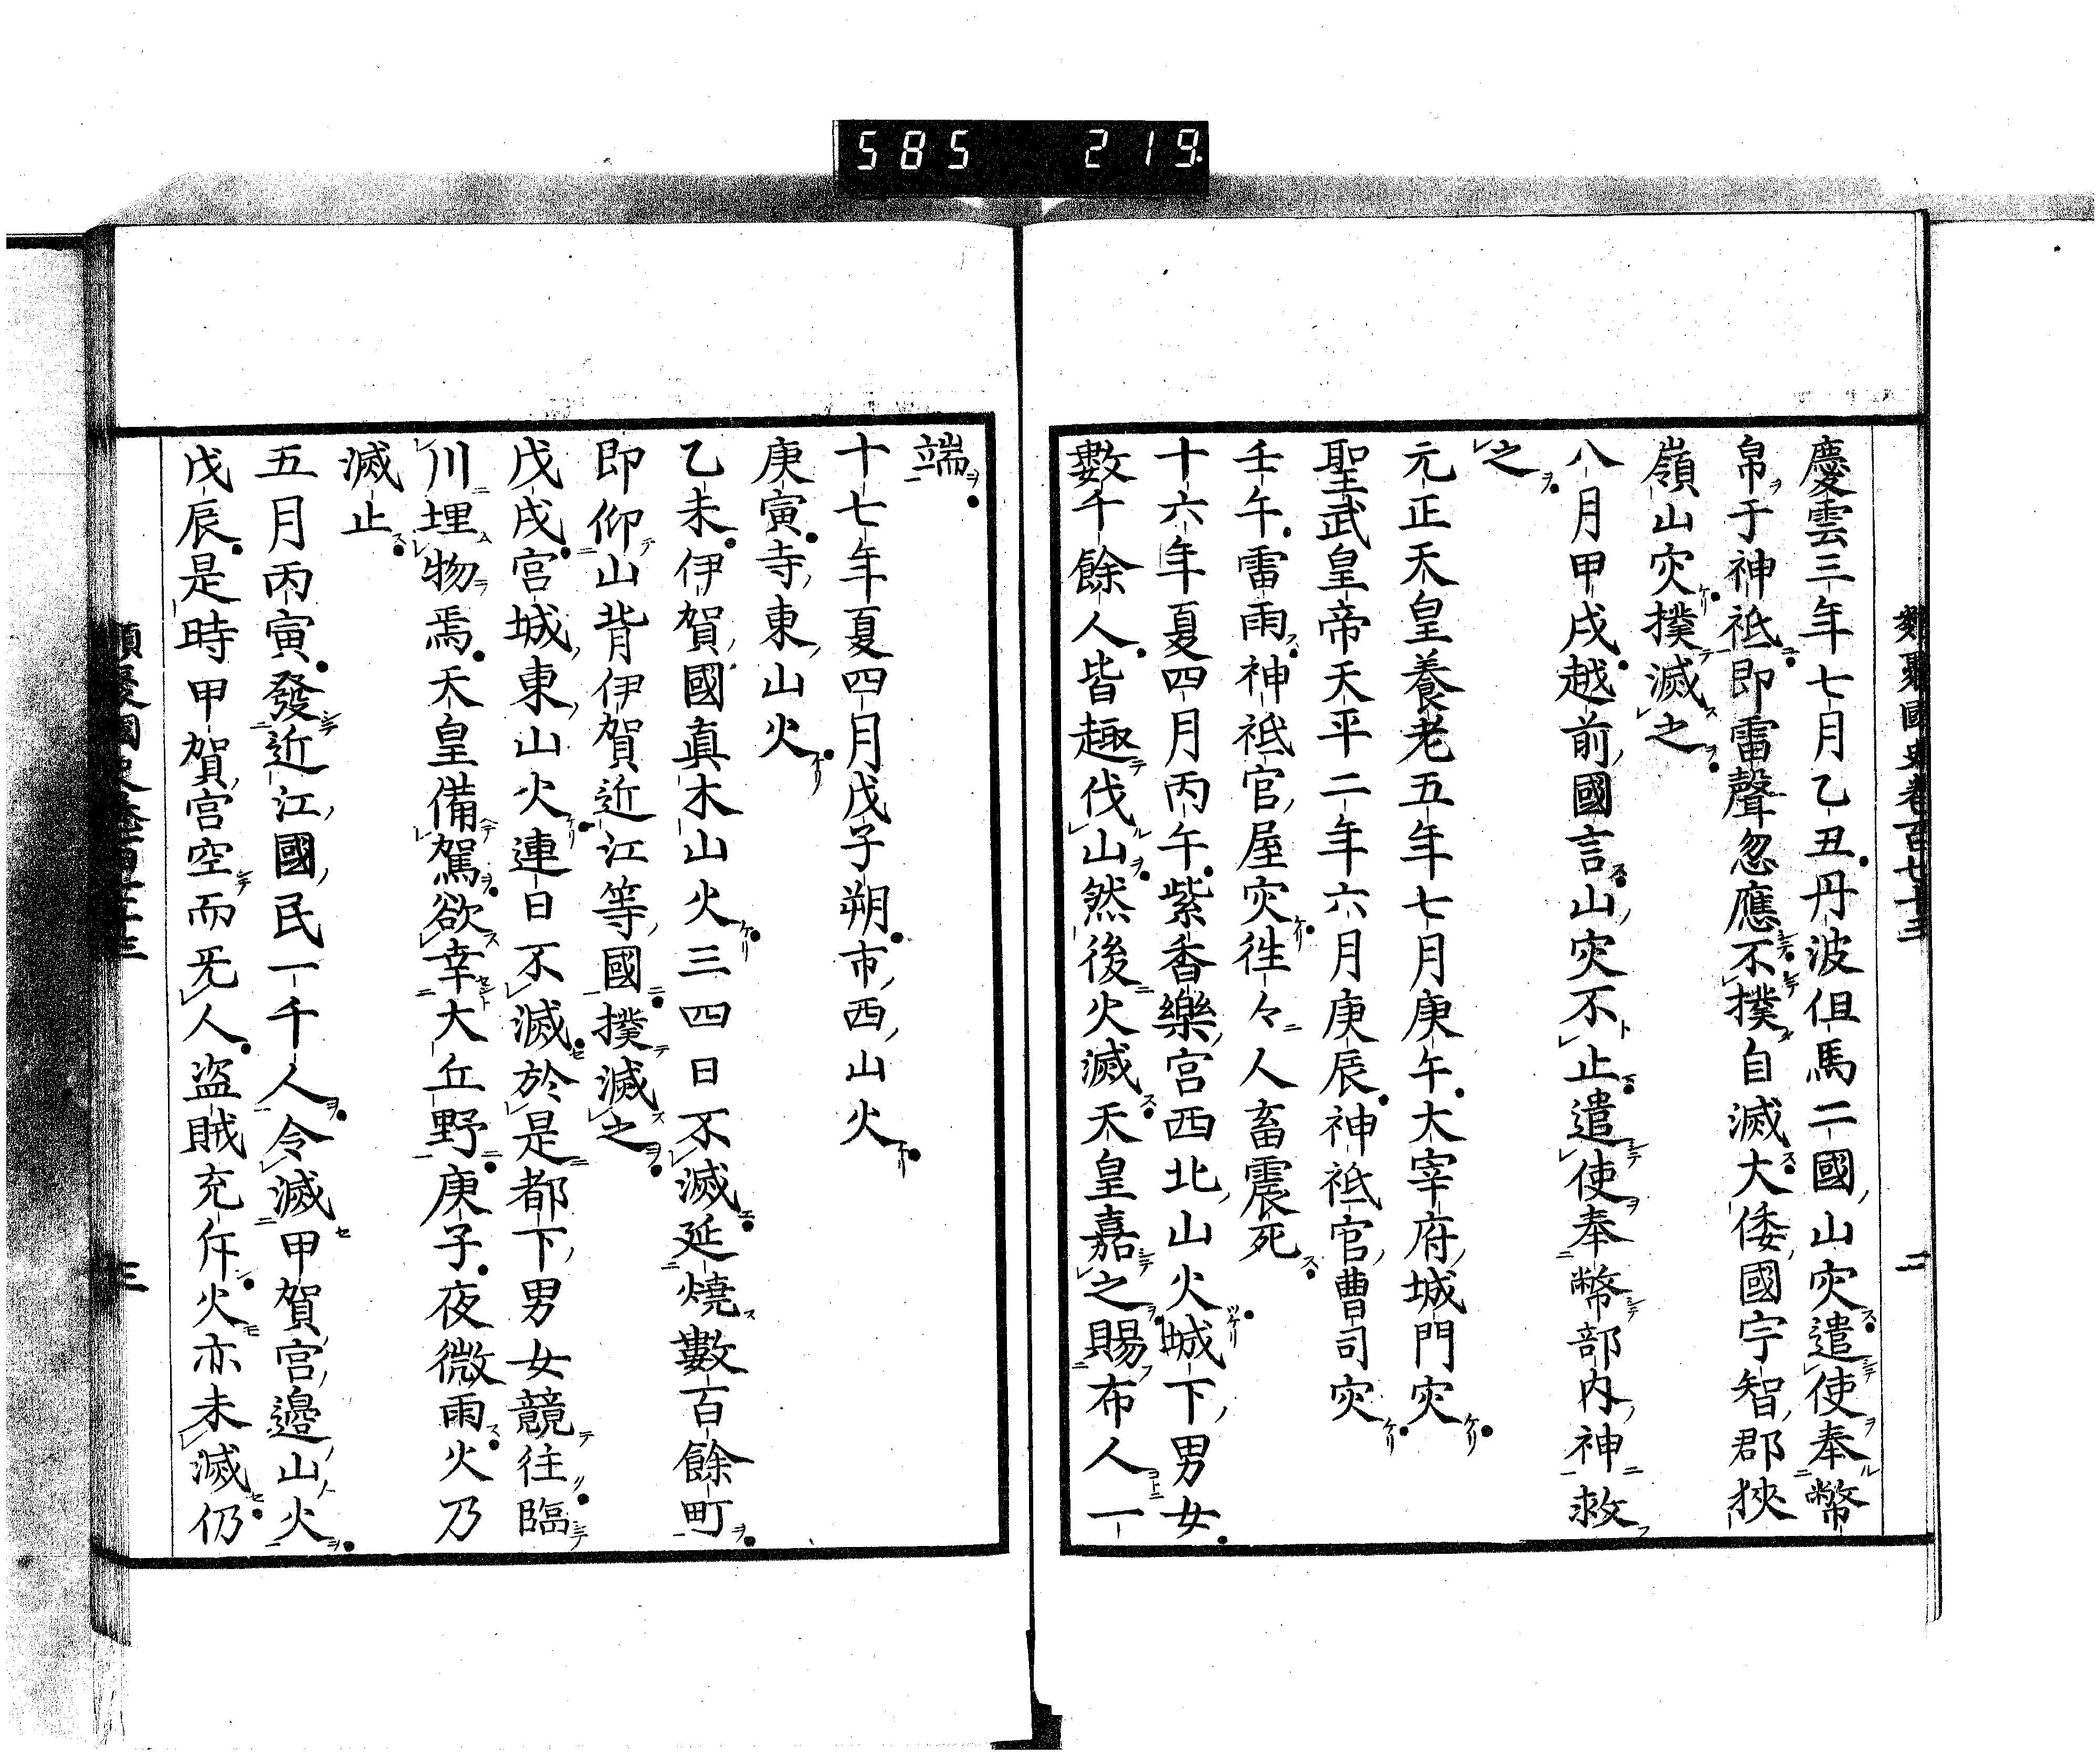 585 219
類聚國史卷百七十三 二
慶雲三年七月乙丑丹波但馬二國山灾遣使奉幣
帛于神祇即雷聲忽應不撲自滅大倭國宇智郡狹
嶺山灾撲滅之
八月甲戌越前國言山灾不止遣使奉幣部內神救
之
元正天皇養老五年七月庚午大宰府城門灾
聖武皇帝天平二年六月庚辰神祇官曹司灾
壬午雷雨神祇官屋灾徃々人畜震死
十六年夏四月丙午紫香樂宮西北山火城下男女
數千餘人皆趣伐山然後火滅天皇嘉之賜布人一
端
十七年夏四月戊子朔市西山火
庚寅寺東山火
乙未伊賀國真木山火三四日不滅延燒數百餘町
即仰山背伊賀近江等國撲滅之
戊戌宮城東山火連日不滅於是都下男女競往臨
川埋物焉天皇備駕欲幸大丘野庚子夜微雨火乃
滅止
五月丙寅發近江國民一千人令滅甲賀宮邊山火
戊辰是時甲賀宮空而无人盜賊充斥火亦未滅仍
類聚國史卷百七十三 三